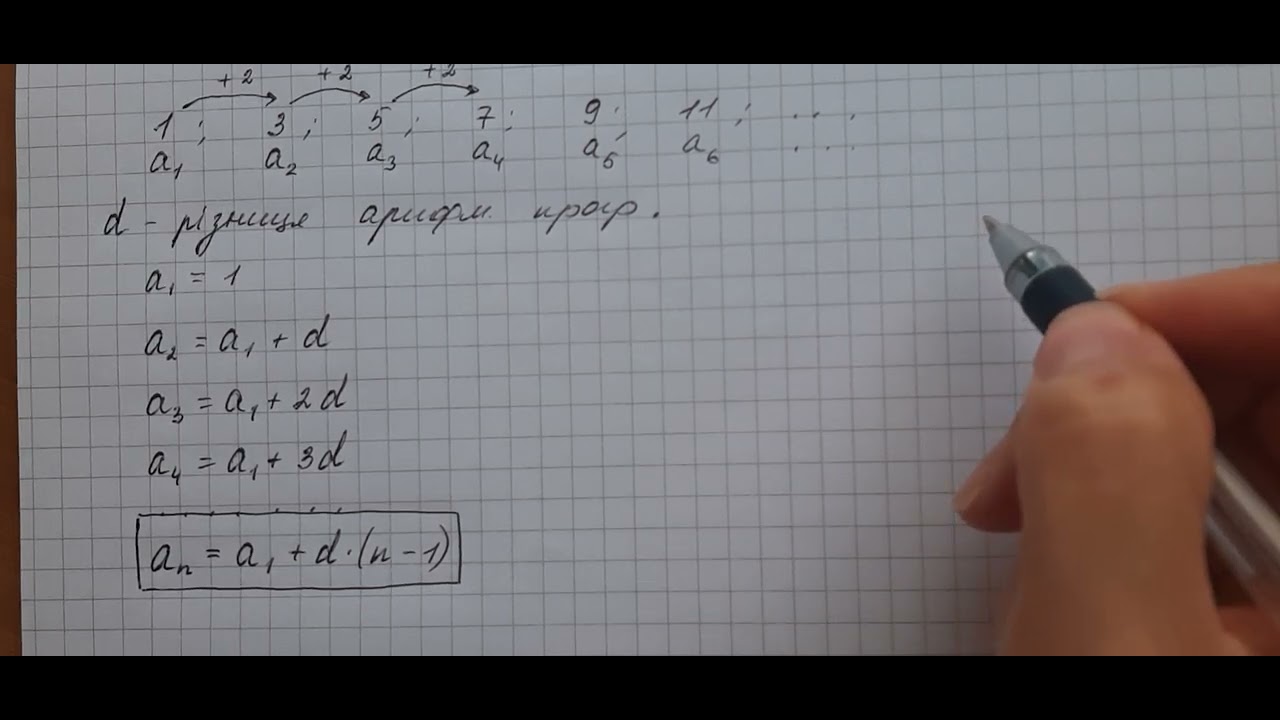 +2 +2 +2
1 ; 3 ; 5 ; 7 ; 9 ; 11 ; . . .
a₁ a₂ a₃ a₄ a₅ a₆ . . .
d - різниця арифм. прогр.
a₁ = 1
a₂ = a₁ + d
a₃ = a₁ + 2d
a₄ = a₁ + 3d
. . . . . .
aₙ = a₁ + d·(n-1)